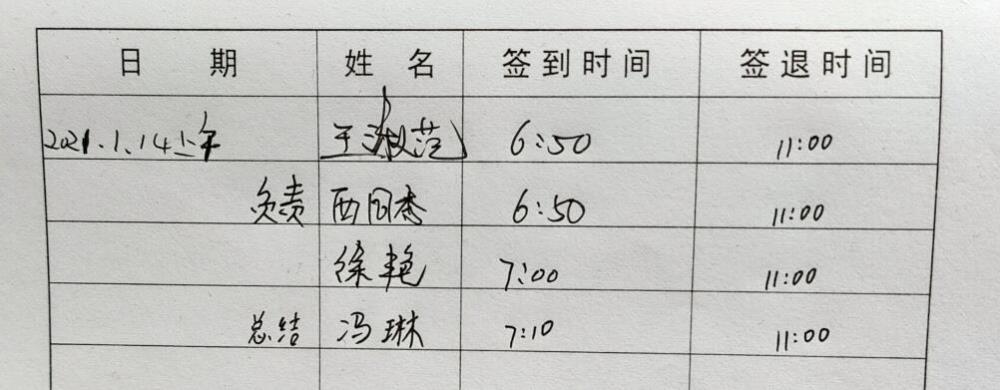 日期 姓名 签到时间 签退时间
2021.1.14上午 王淑范 6:50 11:00
负责 西国杰 6:50 11:00
徐艳 7:00 11:00
总结 冯琳 7:10 11:00